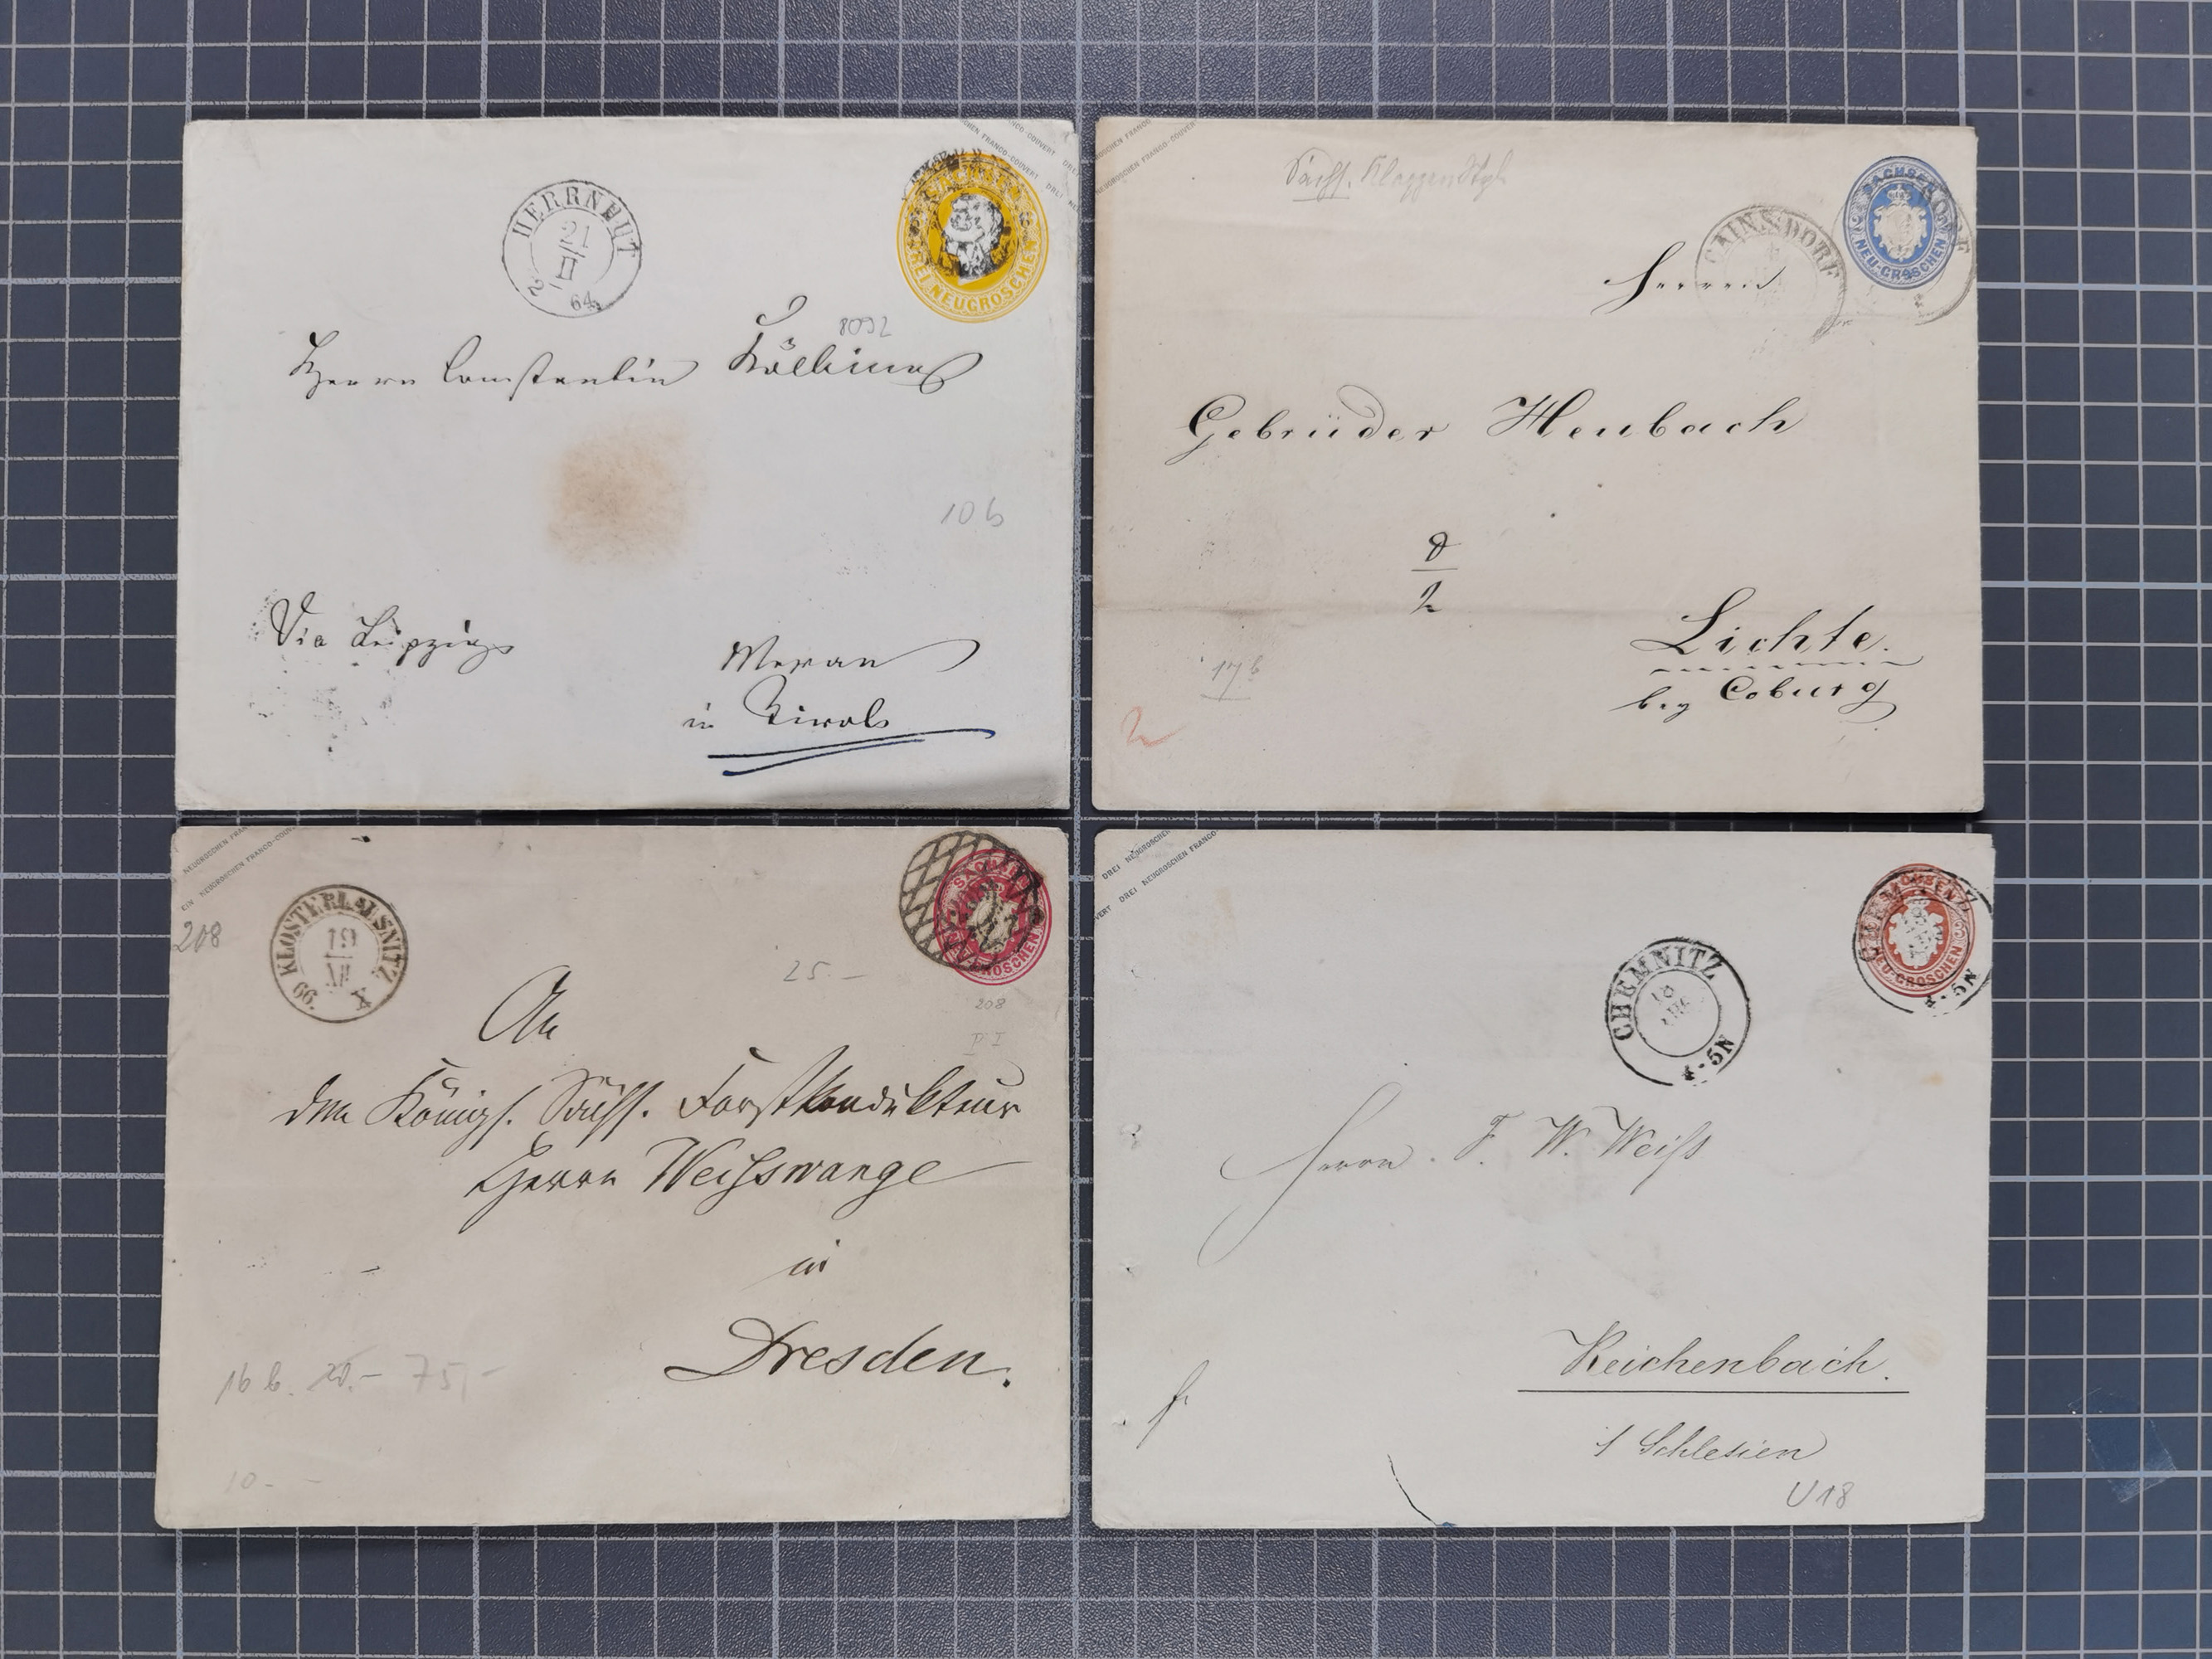 HERRNHUT
21
II
2 64
SACHSEN
DREI NEUGROSCHEN
8092
Herrn Constantin
10 b
Via Leipzig
Meran
in Tirol
NEUGROSCHEN FRANCO-COUVERT
NEUGROSCHEN FRANCO-COUVERT
Sächs.
SACHSEN
NEU-GROSCHEN
CAINSDORF
Herren
Gebrüder Heubach
Lichte.
bey Coburg
17 b
EIN NEUGROSCHEN FRANCO-COUVERT
KLOSTERLAUSNITZ
19
XII
66. X
208
SACHSEN
GROSCHEN
25.—
208
P I
An
den Königl. Sächs. Forstkondukteur
Herrn Weißwange
in
Dresden.
16 b. 20.— 75,—
10.—
DREI NEUGROSCHEN
DREI NEUGROSCHEN FRANCO
CHEMNITZ
18
4-5N
SACHSEN
NEU-GROSCHEN
4-5N
Herrn F. W. Weiß
Reichenbach.
i Schlesien
U 18